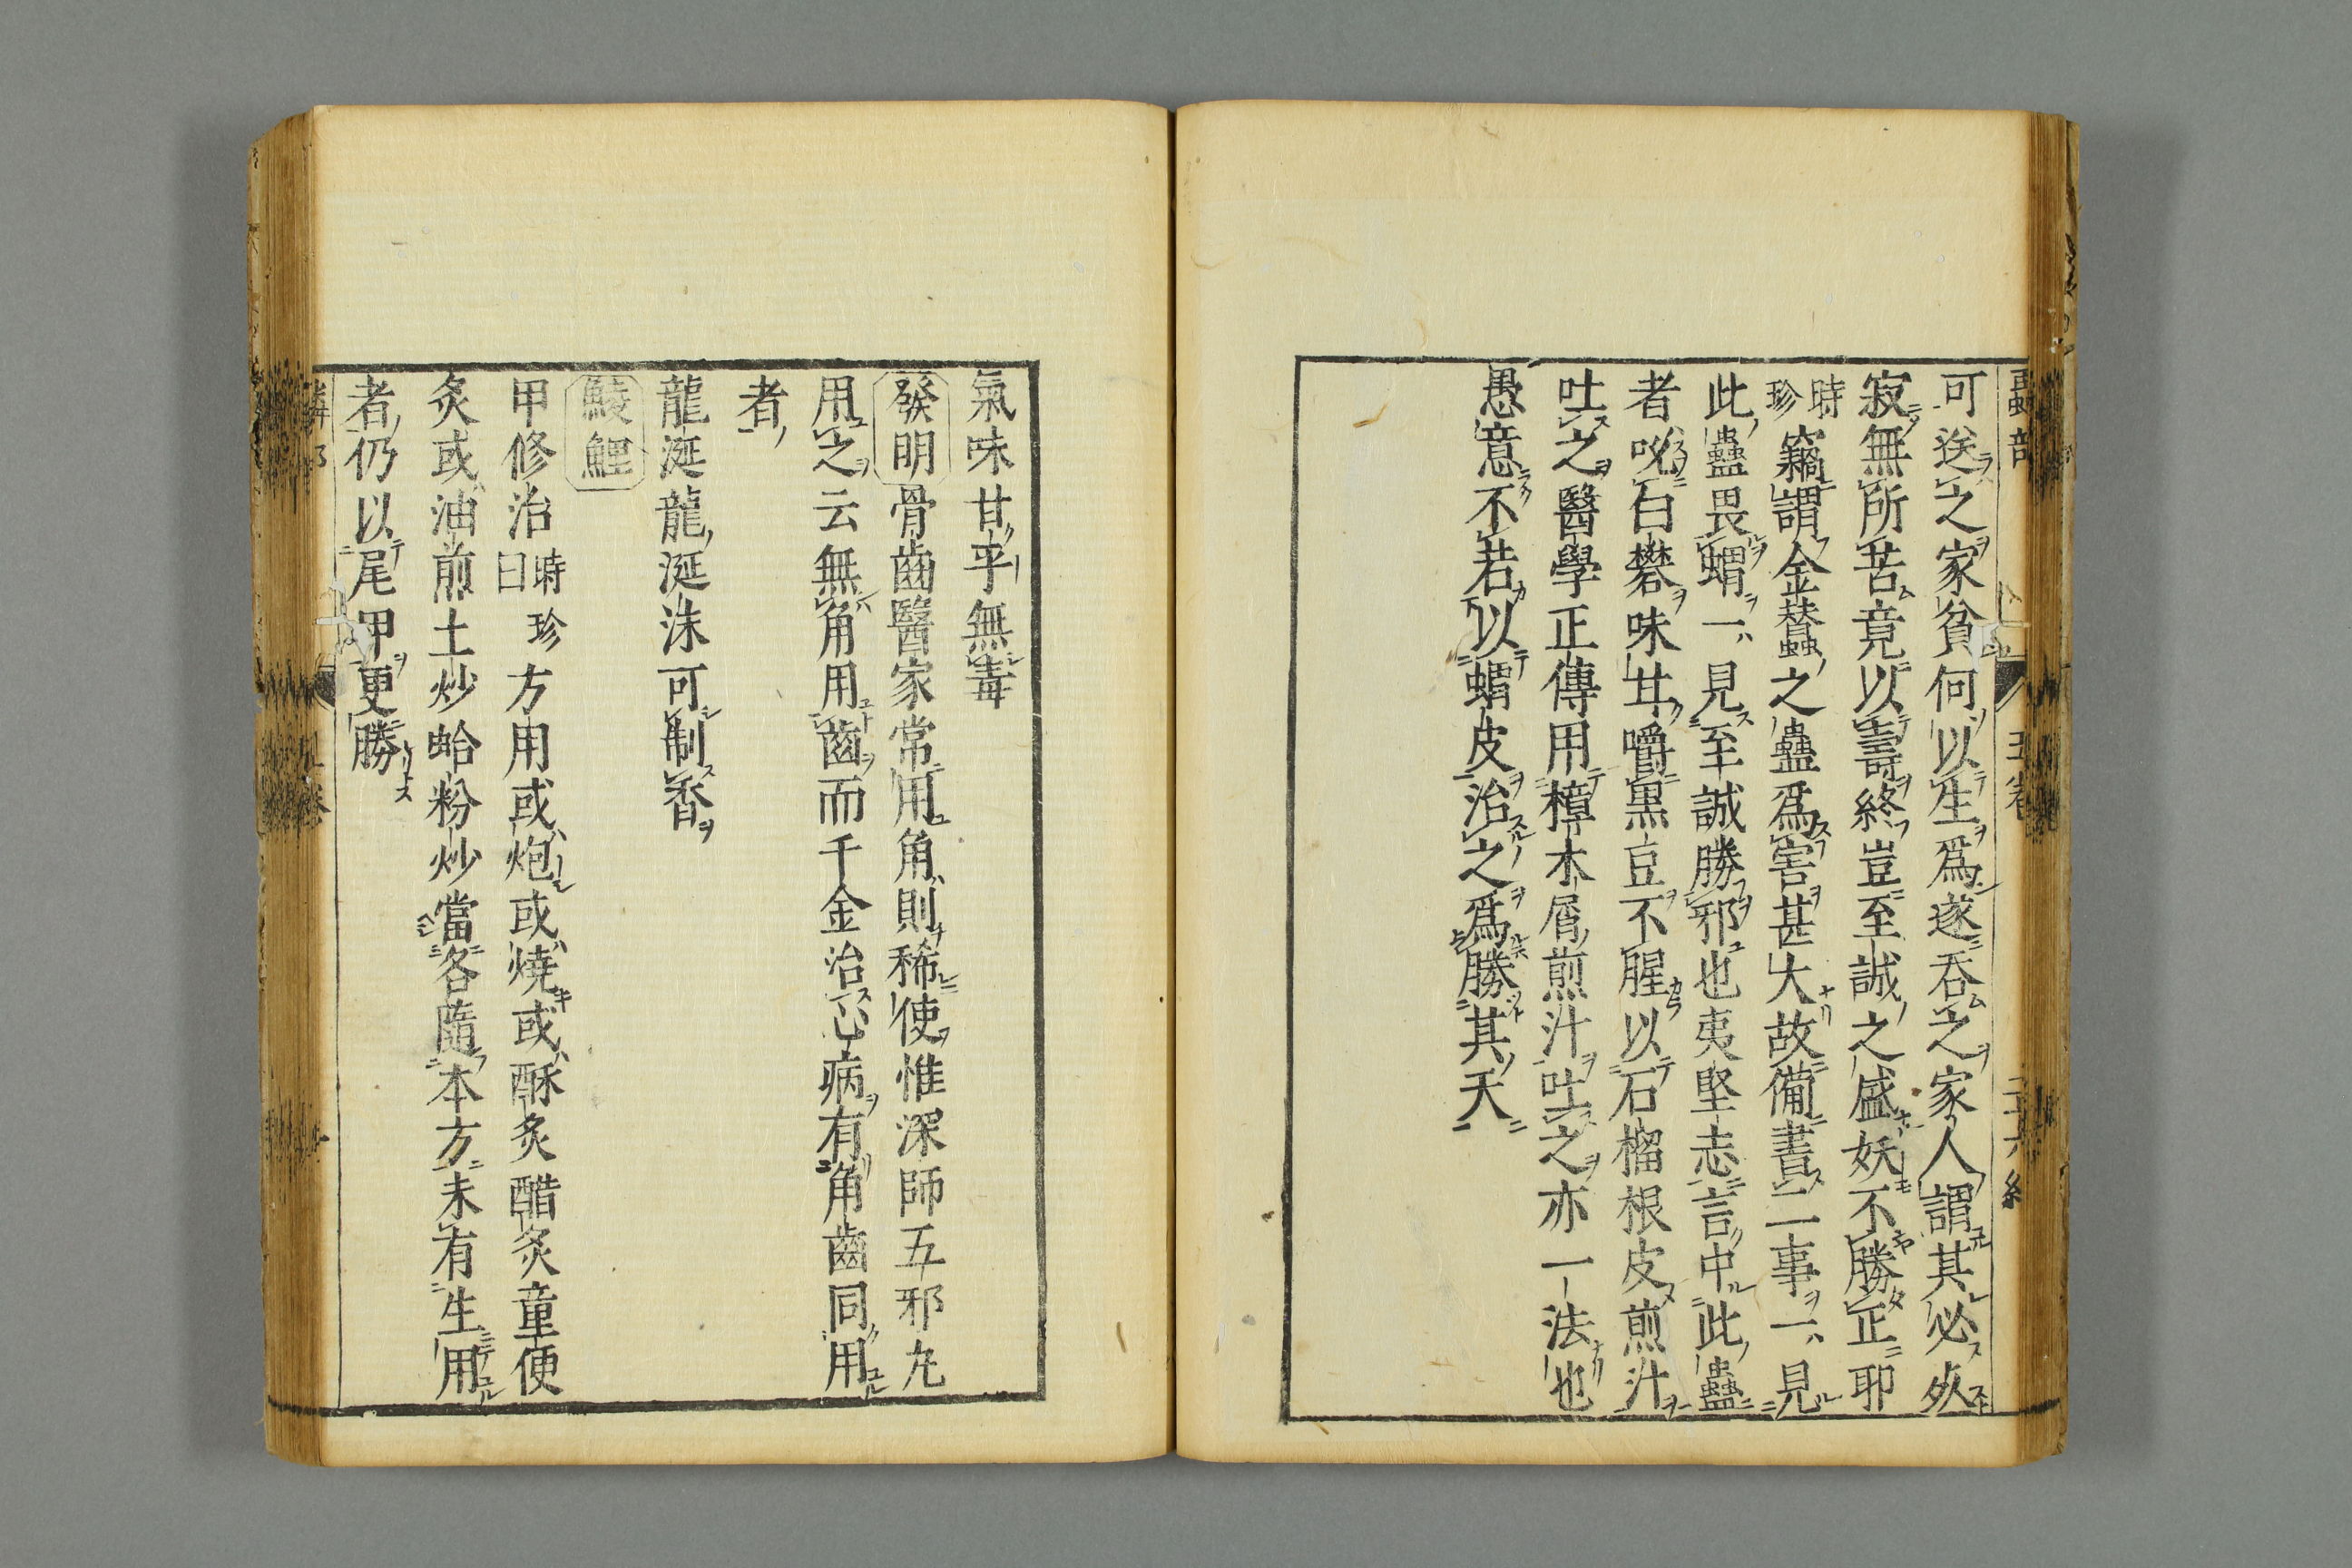 蟲部 五卷
可送之家貧何以生爲遂吞之家人謂其必死
寂無所苦竟以壽終豈至誠之盛妖不勝正耶
時珍竊謂金蠶之蠱爲害甚大故備書二事一見
此蠱畏蝟一見至誠勝邪也夷堅志言中此蠱
者吮白礬味甘嚼黒豆不腥以石榴根皮煎汁
吐之醫學正傳用樟木屑煎汁吐之亦一法也
愚意不若以蝟皮治之爲勝其天
氣味甘平無毒
發明骨齒醫家常用角則稀使惟深師五邪丸
用之云無角用齒而千金治心病有角齒同用
者
龍涎龍涎洙可制香
鯪鯉
甲修治時珍曰方用或炮或燒或酥炙醋炙童便
炙或油煎土炒蛤粉炒當各隨本方未有生用
者仍以尾甲更勝